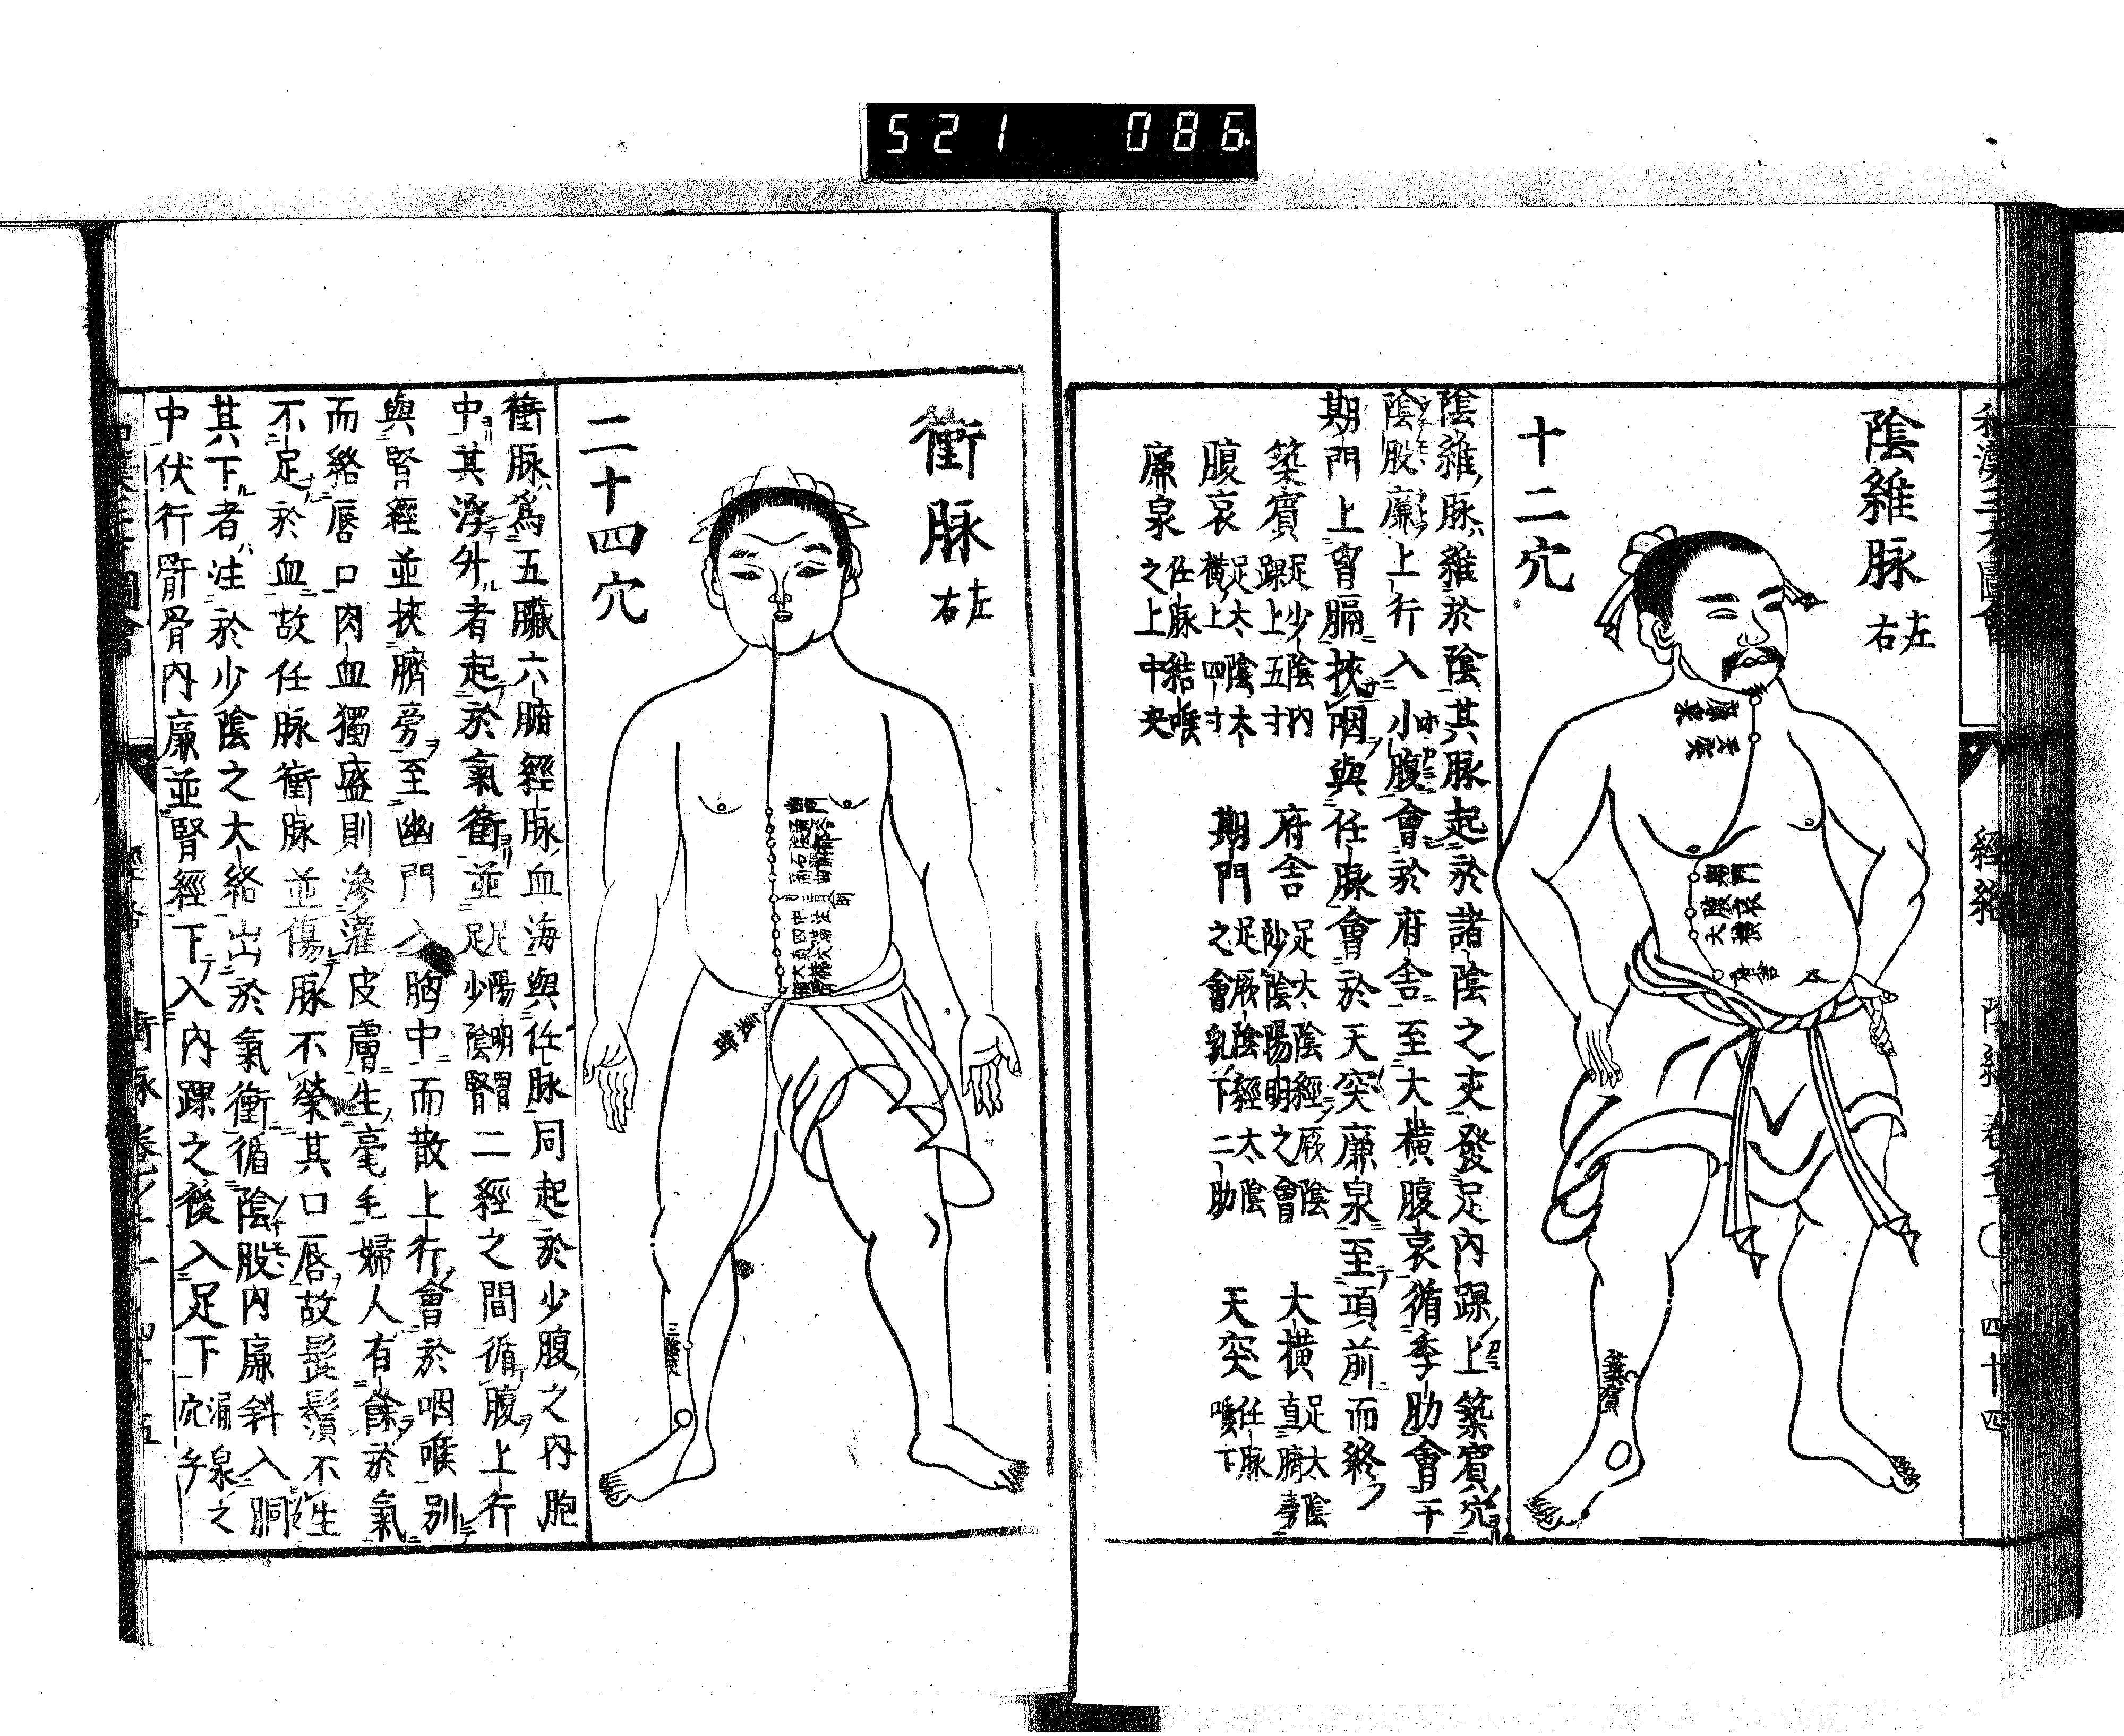 521 086
陰維脉 左右
十二穴
陰維脉維於陰其脉起於諸陰之交發足内踝上築賓穴
陰股廉上行入小腹會於府舎至大橫腹哀循季肋會于
期門上會膈挾咽與任脉會於天突廉泉至項前而終
築賓 足少陰内踝上五寸
府舎 足太陰經厥陰
陰陽明之會
大橫 足太陰直臍旁
腹哀 足太陰太橫上四寸
期門 足厥陰經太陰之會乳下二肋
天突 任脉喉下
廉泉 任脉結喉之上中央
廉泉
天突
期門
腹哀
大橫
府舎
築賓
經絡
四十四
衝脉 左右
二十四穴
衝脉爲五臟六腑經脉血海與任脉同起於少腹之内胞
中其浮外者起於氣衝並足陽明胃足少陰腎二經之間循腹上行
與腎經並挾臍旁至幽門入胸中而散上行會於咽喉别
而絡唇口肉血獨盛則滲灌皮膚生毫毛婦人有餘於氣
不足於血故任脉衝脉並傷脉不榮其口唇故髭鬚不生
其下者注於少陰之大絡出於氣衝循陰股内廉斜入膕
中伏行骭骨内廉並腎經下入内踝之後入足下 涌泉之穴乎